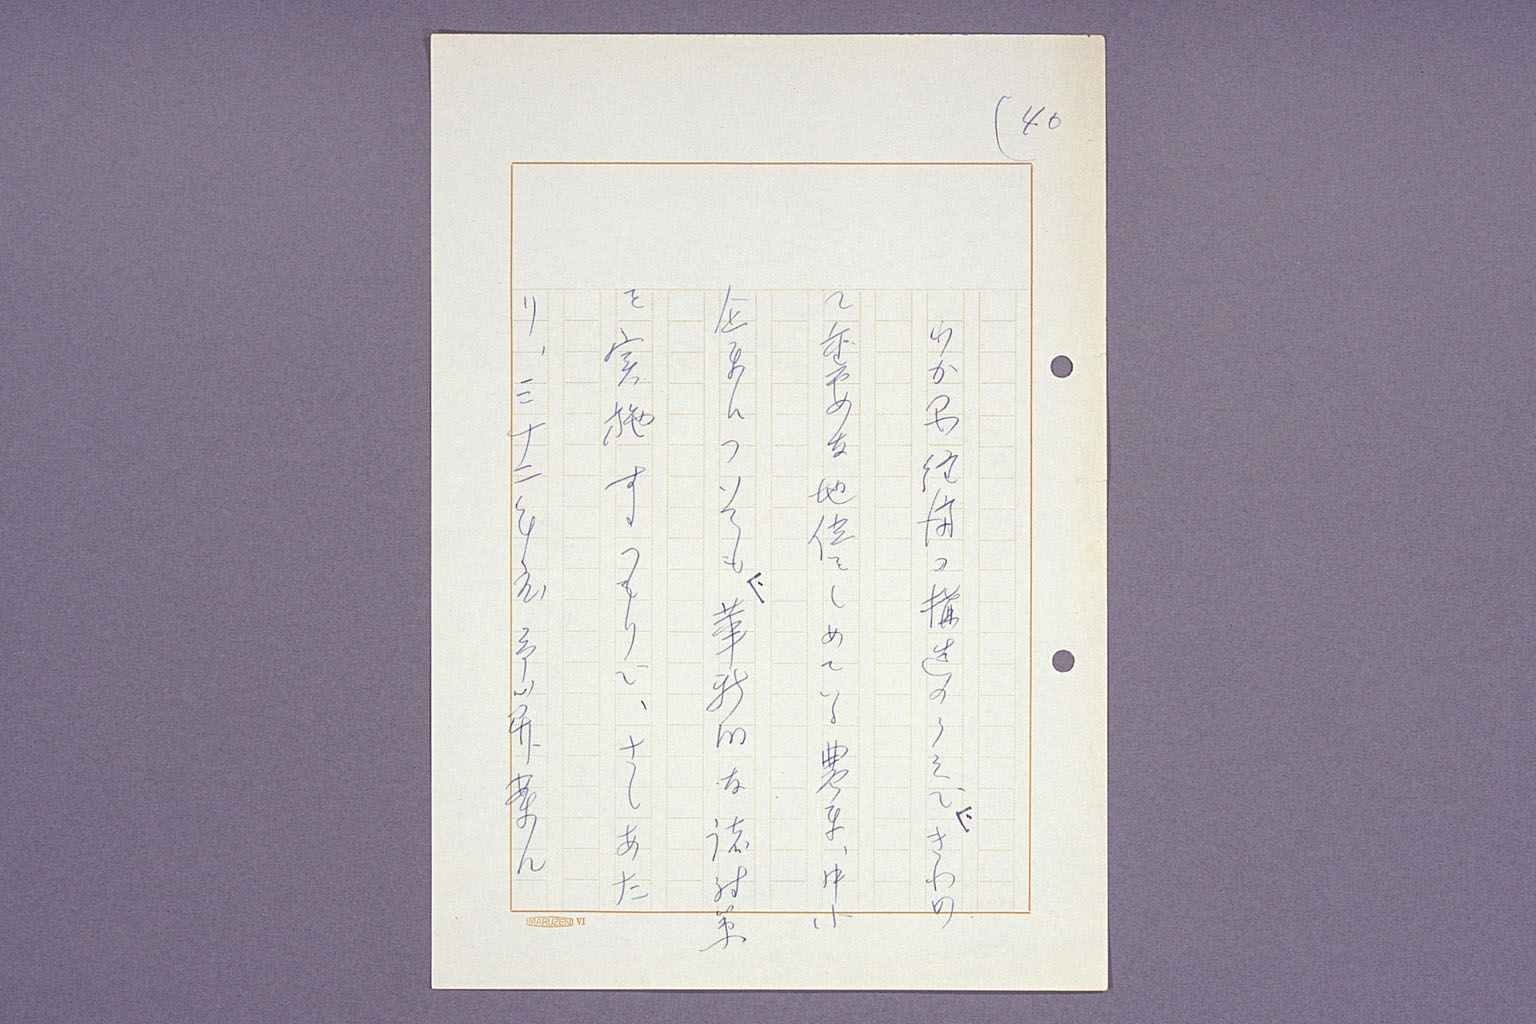 (40
わか国経済の構造のうえで、きわめ
て重要な地位をしめている農業、中小
企業についても、革新的な諸対策
を実施するつもりで、さしあた
り、三十二年度予算編成案に
MARUZEN VI